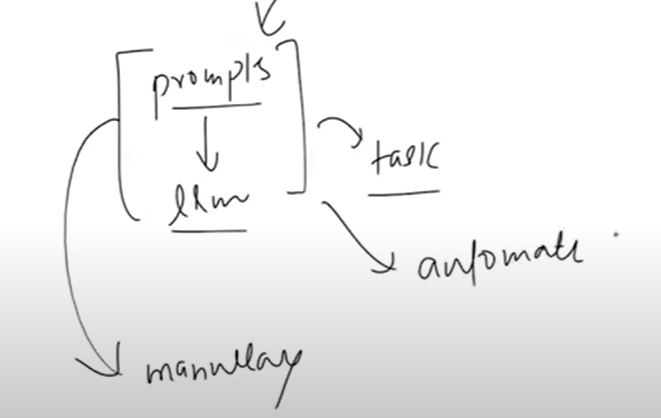 prompts
llm
task
automate
manullay